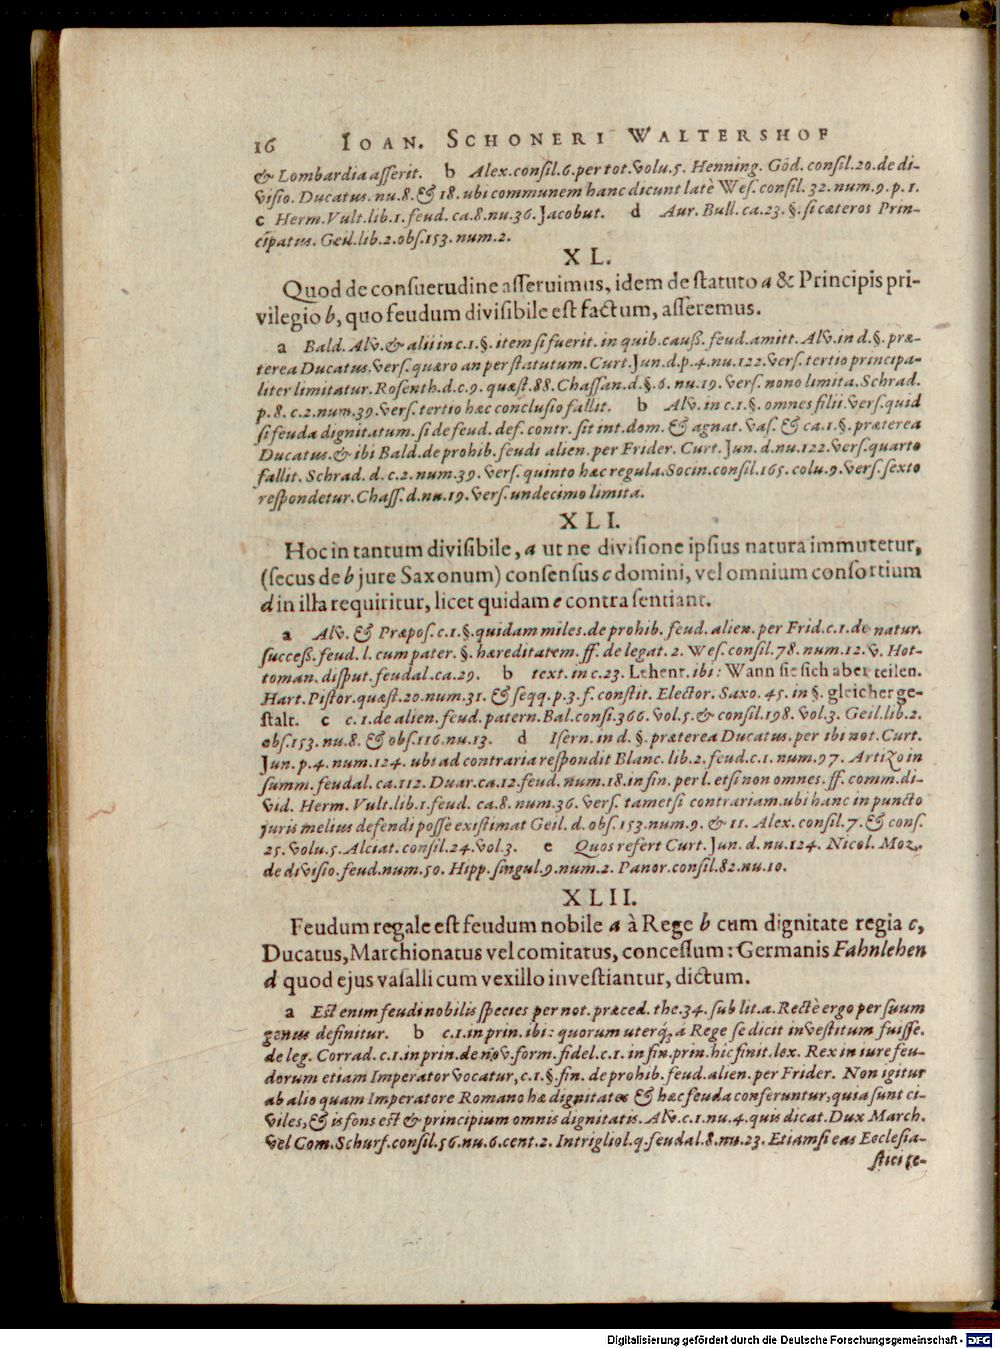 16 IOAN. SCHONERI WALTERSHOF
& Lombardia asserit. b Alex. consil. 6. per tot. volu. 5. Henning. Göd. consil. 20. de di-
visio. Ducatus. nu. 8. & 18. ubi communem hanc dicunt latè Wes. consil. 32. num. 9. p. 1.
c Herm. Vult. lib. 1. feud. ca. 8. nu. 36. Jacobut. d Aur. Bull. ca. 23. §. si cæteros Prin-
cipatus. Geil. lib. 2. obs. 153. num. 2.
XL.
Quod de consuetudine asseruimus, idem de statuto a & Principis pri-
vilegio b, quo feudum divisibile est factum, asseremus.
a Bald. Alv. & alii in c. 1. §. item si fuerit. in quib. cauß. feud. amitt. Alv. in d. §. præ-
terea Ducatus. vers. quæro an per statutum. Curt. Jun. d. p. 4. nu. 122. vers. tertio principa-
liter limitatur. Rosenth. d. c. 9. quæst. 88. Chassan. d. §. 6. nu. 19. vers. nono limita. Schrad.
p. 8. c. 2. num. 39. vers. tertio hæc conclusio fallit. b Alv. in c. 1. §. omnes filii. vers. quid
si feuda dignitatum. si de feud. def. contr. sit int. dom. & agnat. vas. & ca. 1. §. præterea
Ducatus. & ibi Bald. de prohib. feudi alien. per Frider. Curt. Jun. d. nu. 122. vers. quarto
fallit. Schrad. d. c. 2. num. 39. vers. quinto hæc regula. Socin. consil. 165. colu. 9. vers. sexto
respondetur. Chass. d. nu. 19. vers. undecimo limita.
XLI.
Hoc in tantum divisibile, a ut ne divisione ipsius natura immutetur,
(secus de b jure Saxonum) consensus c domini, vel omnium consortium
d in illa requiritur, licet quidam e contra sentiant.
a Alv. & Præpos. c. 1. §. quidam miles. de prohib. feud. alien. per Frid. c. 1. de natur.
success. feud. l. cum pater. §. hæreditatem. ff. de legat. 2. Wes. consil. 78. num. 12. v. Hot-
toman. disput. feudal. ca. 29. b text. in c. 23. Lehenr. ibi: Wann sie sich aber teilen.
Hart. Pistor. quæst. 20. num. 31. & seqq. p. 3. f. constit. Elector. Saxo. 45. in §. gleicher ge-
stalt. c c. 1. de alien. feud. patern. Bal. consi. 366. vol. 5. & consil. 198. vol. 3. Geil. lib. 2.
obs. 153. nu. 8. & obs. 116. nu. 13. d Isern. in d. §. præterea Ducatus. per ibi not. Curt.
Jun. p. 4. num. 124. ubi ad contraria respondit Blanc. lib. 2. feud. c. 1. num. 97. Artizo in
summ. feudal. ca. 112. Duar. ca. 12. feud. num. 18. in fin. per l. etsi non omnes. ff. comm. di-
vid. Herm. Vult. lib. 1. feud. ca. 8. num. 36. vers. tametsi contrariam. ubi hanc in puncto
juris melius defendi posse existimat Geil. d. obs. 153. num. 9. & 11. Alex. consil. 7. & cons.
25. volu. 5. Alciat. consil. 24. vol. 3. e Quos refert Curt. Jun. d. nu. 124. Nicol. Moz.
de divisio. feud. num. 50. Hipp. singul. 9. num. 2. Panor. consil. 82. nu. 10.
XLII.
Feudum regale est feudum nobile a à Rege b cum dignitate regia c,
Ducatus, Marchionatus vel comitatus, concessum: Germanis Fahnlehen
d quod ejus vasalli cum vexillo investiantur, dictum.
a Est enim feudi nobilis species per not. præced. the. 34. sub lit. a. Rectè ergo per suum
genus definitur. b c. 1. in prin. ibi: quorum uterq; à Rege se dicit investitum fuisse.
de leg. Corrad. c. 1. in prin. de nov. form. fidel. c. 1. in fin. prin. hic finit. lex. Rex in jure feu-
dorum etiam Imperator vocatur, c. 1. §. fin. de prohib. feud. alien. per Frider. Non igitur
ab alio quam Imperatore Romano hæ dignitates & hæc feuda conferuntur, quia sunt ci-
viles, & is fons est & principium omnis dignitatis. Alv. c. 1. nu. 4. quis dicat. Dux March.
vel Com. Schurf. consil. 56. nu. 6. cent. 2. Intrigliol. q. feudal. 8. nu. 23. Etiamsi eas Ecclesia-
stici te-
Digitalisierung gefördert durch die Deutsche Forschungsgemeinschaft - DFG